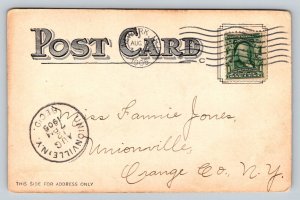 POST CARD
AUG
UNIONVILLE, N.Y.
AUG
1905
REC'D.
Miss Fannie Jones,
Unionville,
Orange Co., N.Y.
THIS SIDE FOR ADDRESS ONLY